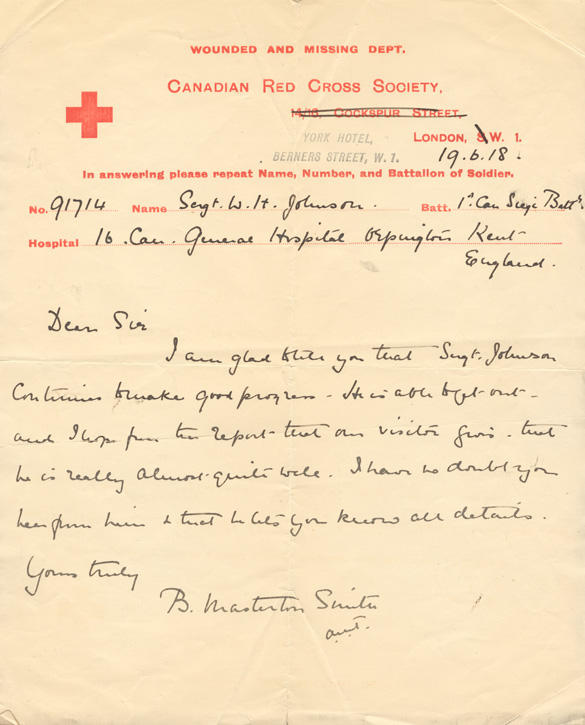 WOUNDED AND MISSING DEPT.
CANADIAN RED CROSS SOCIETY,
14/16, COCKSPUR STREET,
YORK HOTEL, LONDON, S.W. 1.
BERNERS STREET, W. 1. 19.6.18.
In answering please repeat Name, Number, and Battalion of Soldier.
No. 91714 Name Sergt. W. H. Johnson. Batt. 1st Can Siege Batty.
Hospital 16. Can. General Hospital Orpington Kent
England.
Dear Sir
I am glad to tell you that Sergt. Johnson
continues to make good progress - He is able to get out -
and I hope from the report that our visitor gives - that
he is really almost quite well. I have no doubt you
hear from him & that he lets you know all details.
Yours truly
B. Masterton Smith